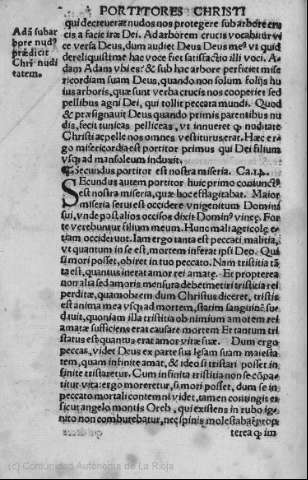 PORTITORES CHRISTI
Adā subar
bore nudꝰ
prædicit
Chri nudi
tatem.
qui decreuerat nudos nos protegere sub arbore cru
cis a facie iræ Dei. Ad arborem crucis vocabitur vi
ce versa Deus, dum audiet Deus Deus meꝰ vt quid
dereliquisti me hac voce fiet satisfactio illi voci. A-
dam Adam vbi es: & sub hac arbore perficiet mise
ricordiam suam Deus, quando non solum folijs hu
ius arboris, quæ sunt verba crucis nos cooperiet sed
pellibus agni Dei, qui tollit peccata mundi. Quod
& præsignauit Deus quando primis parentibus nu
dis, fecit tunicas pelliceas, vt innueret ꝙ nuditate
Christi ac pelle nos omnes vestiturus erat. Hæc er-
go misericordia est portitor primus qui Dei filium
vsꝗ ad mansoleum induxit.
¶ Secundus portitor est nostra miseria. Ca. 1.4.
SEcundus autem portitor huic primo coniunctꝰ
est nostra miseria, quæ hoc efflagitabat. Maior
miseria serui est occidere vnigenitum Domini
sui, vnde post alios occisos dixit Dominꝰ vineę. For
te verebuntur filium meum. Hunc mali agricolę et
iam occiderunt. Iam ergo tanta est peccati malitia,
vt quantum in se est, mortem inferat ipsi Deo. Qui
si mori posset, obiret in tuo peccato. Nam tristitia tā
ta est, quantus inerat amor rei amatę. Et propterea
non alia sed amoris mensura debet metiri tristitia rei
perditæ, quamobrem dum Christus diceret, tristis
est anima mea vsꝗ ad mortem, statim sanguinē su-
dauit, quoniam illa tristitia ob nimium amorem rei
amatæ sufficiens erat causare mortem Et tantum tri
status est quantus erat amor vitæ suæ. Dum ergo
peccas, videt Deus ex parte sua læsam suam maiesta
tem, quam infinite amat, & ideo si tristari posset in-
finite tristaretur. Cum infinita tristitia non cōpa-
titur vita: ergo moreretur, si mori posset, dum se in
peccato mortali contemni videt, tamen contingit ei
sicut angelo montis Oreb, qui existens in rubo ignito
non comburebatur, nec spinis molestabat
terea ꝙ im
(c) Comunidad Autónoma de La Rioja